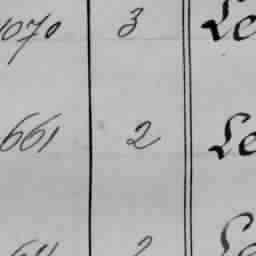 1070 3 Le
661 2 Le
2 Le